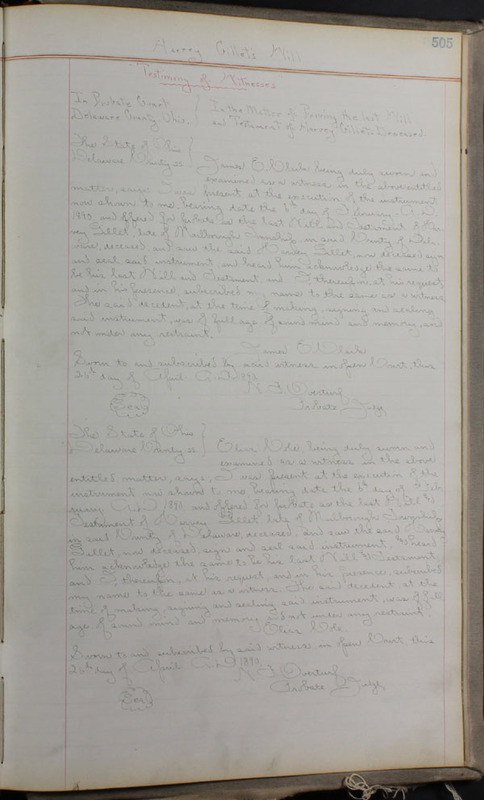 505
Harvey Gillet's Will
Testimony of Witnesses.
In Probate Court
Delaware County Ohio.
In the Matter of Proving the last Will
and Testament of Harvey Gillet Deceased.
The State of Ohio
Delaware County ss
James E. being duly sworn and
examined as a witness in the above entitled
matter, says I was present at the execution of the instrument
now shown to me, bearing date the 6th day of February A.D.
1890, and offered for probate as the last Will and Testament of Har-
vey Gillet late of Marlborough Township, in said County of Dela-
ware, deceased, and saw the said Harvey Gillet, now deceased sign
and seal said instrument, and heard him acknowledge the same to
be his last Will and Testament, and I thereupon, at his request,
and in his presence, subscribed my name to the same as a witness.
The said decedent, at the time of making, signing and sealing
said instrument, was of full age of sound mind and memory, and
not under any restraint.
James E.
Sworn to and subscribed by said witness in open Court, this
26th day of April A.D. 1890.
N. F. Overturf
Probate Judge
Seal
The State of Ohio
Delaware County ss.
Eliza Cole, being duly sworn and
examined as a witness in the above
entitled matter, says, I was present at the execution of the
instrument now shown to me, bearing date the 6th day of Feb-
ruary A.D. 1890, and offered for probate as the last Will &
Testament of Harvey Gillet late of Marlborough Township
in said County of Delaware, deceased, and saw the said Harvey
Gillet, now deceased, sign and seal said instrument, & heard
him acknowledge the same to be his last Will & Testament,
and I thereupon, at his request, and in his presence, subscribed
my name to the same as a witness. The said decedent, at the
time of making, signing and sealing said instrument, was of full
age, of sound mind and memory, and not under any restraint
Eliza Cole.
Sworn to and subscribed by said witness in open Court, this
26th day of April A.D. 1890.
N. F. Overturf
Probate Judge
Seal